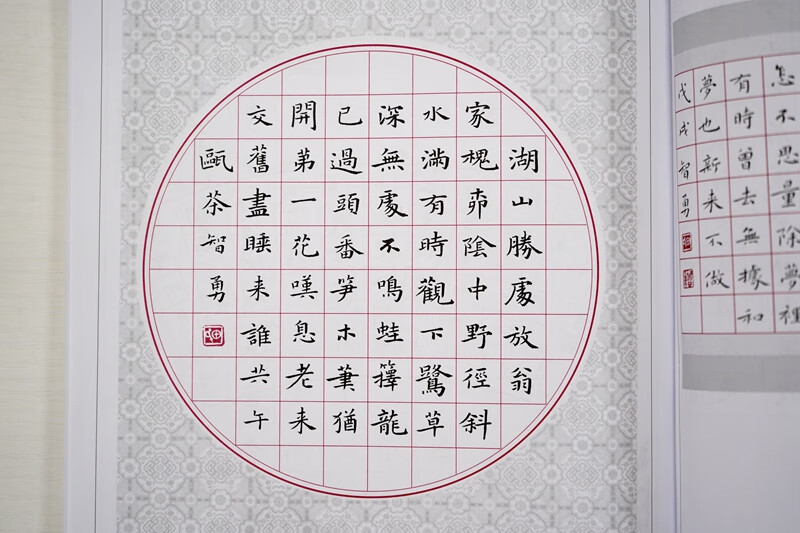 湖山勝處放翁
家槐柳陰中野徑斜
水滿有時觀下鷺草
深無處不鳴蛙籜龍
已過頭番笋木筆猶
開弟一花嘆息老来
交舊盡睡来誰共午
甌茶智勇
怎不思量除夢裡
有時曾去無據和
夢也新来不做
戊戌智勇